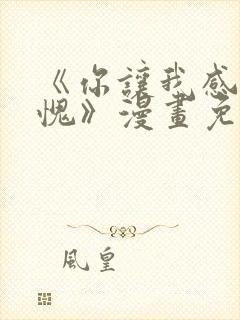 《你讓我感
愧》漫畫免
風皇